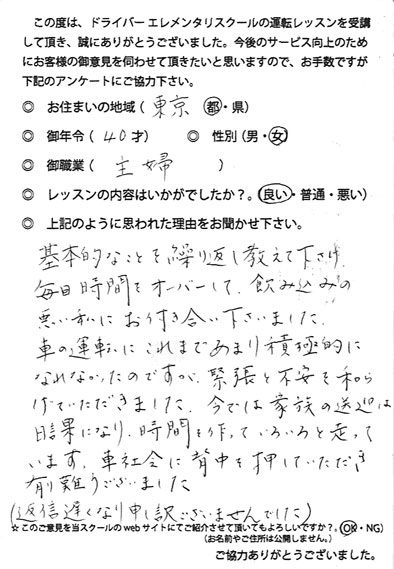 この度は、ドライバー エレメンタリスクールの運転レッスンを受講
して頂き、誠にありがとうございました。今後のサービス向上のため
にお客様の御意見を伺わせて頂きたいと思いますので、お手数ですが
下記のアンケートにご協力下さい。
◎ お住まいの地域( 東京 都・県)
◎ 御年令( 40 才) ◎ 性別(男・女)
◎ 御職業( 主婦 )
◎ レッスンの内容はいかがでしたか?。(良い・普通・悪い)
◎ 上記のように思われた理由をお聞かせ下さい。
基本的なことを繰り返し教えて下さり、
毎日時間をオーバーして、飲み込みの
悪い私にお付き合い下さいました。
車の運転にこれまであまり積極的に
なれなかったのですが、緊張と不安を和ら
げていただきました。今では家族の送迎は
日課になり、時間を作っていろいろと走って
います。車社会に背中を押していただき
有り難うございました
(返信遅くなり申し訳ございませんでした)
☆ このご意見を当スクールのwebサイトにてご紹介させて頂いてもよろしいですか?。(OK・NG)
(お名前やご住所は公開しません。)
ご協力ありがとうございました。